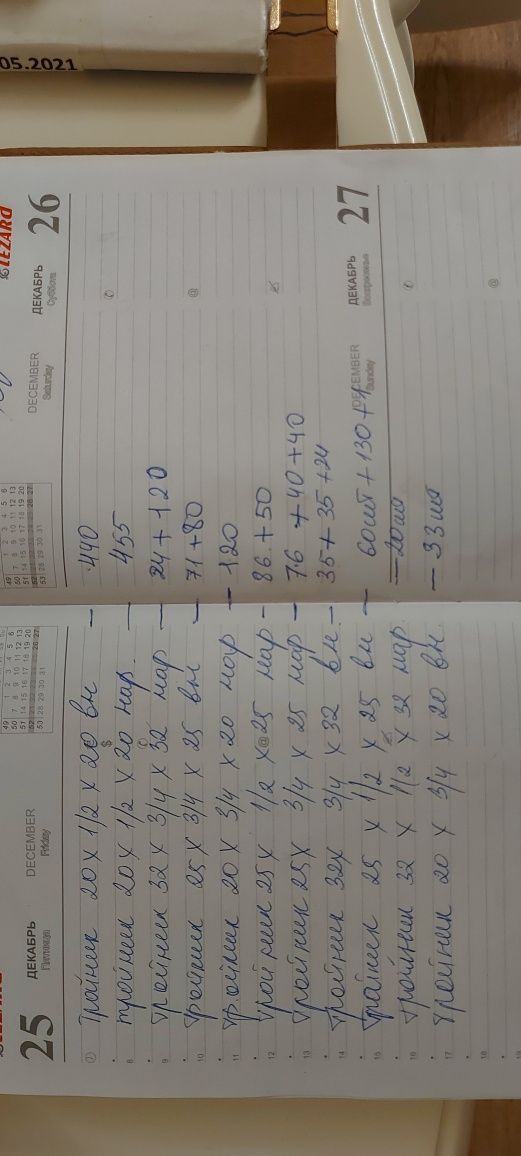 05.2021
LEZARD
25 ДЕКАБРЬ Пятница DECEMBER Friday
DECEMBER Saturday ДЕКАБРЬ Суббота 26
Тройник 20 х 1/2 х 20 вн — 440
тройник 20 х 1/2 х 20 нар. — 455
Тройник 32 х 3/4 х 32 нар — 24 + 120
Тройник 25 х 3/4 х 25 вн — 71 + 80
Тройник 20 х 3/4 х 20 нар — 120
Тройник 25 х 1/2 х 25 нар — 86 + 50
Тройник 25 х 3/4 х 25 нар — 76 + 40 + 40
Тройник 32 х 3/4 х 32 вн. — 35 + 35 + 24
Тройник 25 х 1/2 х 25 вн — 60 шт + 130 +
DECEMBER Sunday ДЕКАБРЬ Воскресенье 27
Тройник 32 х 1/2 х 32 нар — 20 шт
Тройник 20 х 3/4 х 20 вн. — 33 шт
8
9
10
11
12
13
14
15
16
17
18
19